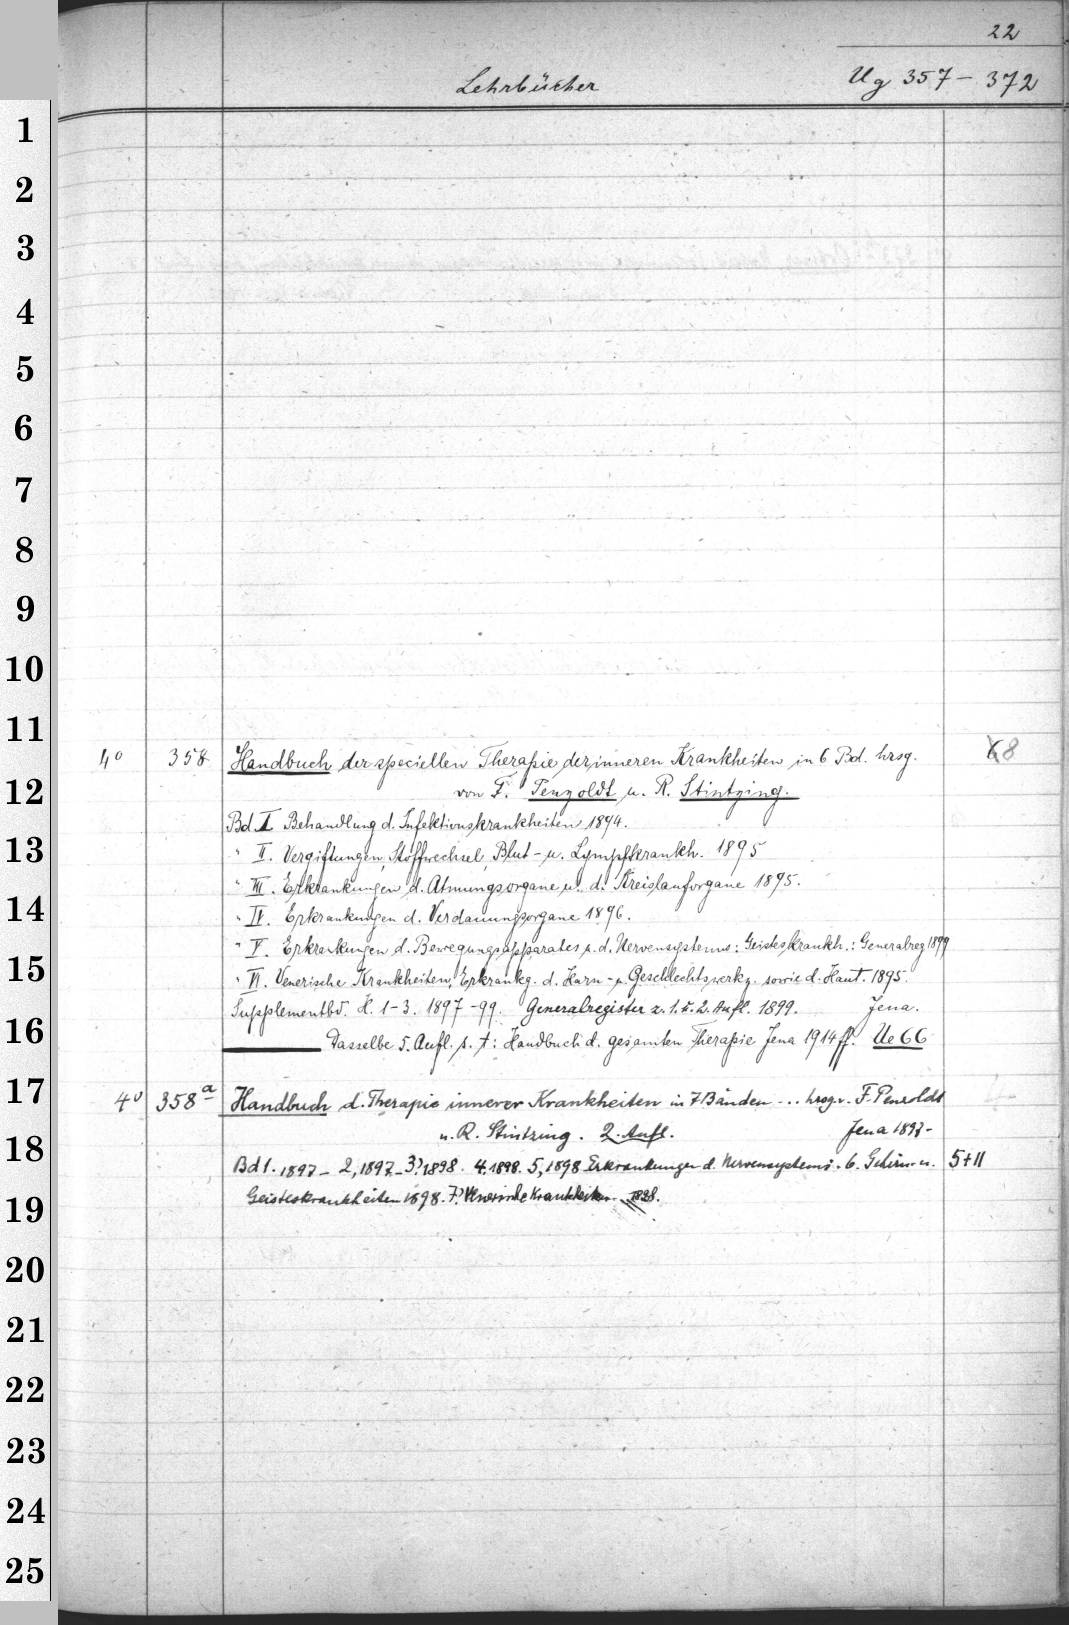 22
Lehrbücher Ug 357 - 372
1
2
3
4
5
6
7
8
9
10
11
4° 358 Handbuch der speciellen Therapie der inneren Krankheiten in 6 Bd. hrsg. 8
12
von F. Penzoldt u. R. Stintzing.
Bd. I Behandlung d. Infektionskrankheiten 1894.
13
" II. Vergiftungen, Stoffwechsel, Blut- u. Lymphkrankh. 1895
" III. Erkrankungen d. Atmungsorgane u. d. Kreislauforgane 1895.
14
" IV. Erkrankungen d. Verdauungsorgane 1896.
" V. Erkrankungen d. Bewegungsapparates u. d. Nervensystems: Geisteskrankh.: Generalreg 1899
15
" VI. Venerische Krankheiten, Erkrankg. d. Harn- u. Geschlechtswerkz. sowie d. Haut. 1895.
Supplementbd. H. 1-3. 1897-99. Generalregister z. 1. u. 2. Aufl. 1899. Jena.
16
Dasselbe 5. Aufl. s. t: Handbuch d. gesamten Therapie Jena 1914 ff. Ue 66
17
4° 358a Handbuch d. Therapie innerer Krankheiten in 7 Bänden ... hrsg. v. F. Penzoldt
u. R. Stintzing. 2. Aufl. Jena 1897-
18
Bd 1. 1897 - 2, 1897 - 3, 1898. 4. 1898. 5, 1898 Erkrankungen d. Nervensystems. 6. Gehirn- u. 5+11
19
Geisteskrankheiten 1898. 7, Venerische Krankheiten 1898.
20
21
22
23
24
25